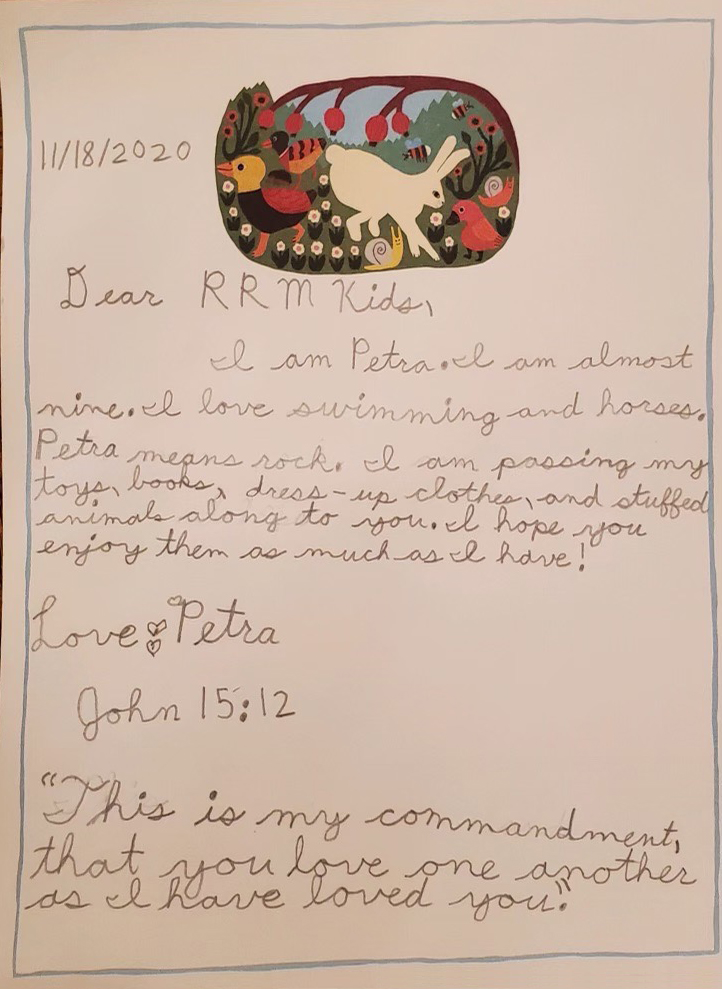 11/18/2020
Dear RRM Kids,
I am Petra. I am almost
nine. I love swimming and horses.
Petra means rock. I am passing my
toys, books, dress-up clothes, and stuffed
animals along to you. I hope you
enjoy them as much as I have!
Love Petra
John 15:12
"This is my commandment,
that you love one another
as I have loved you."